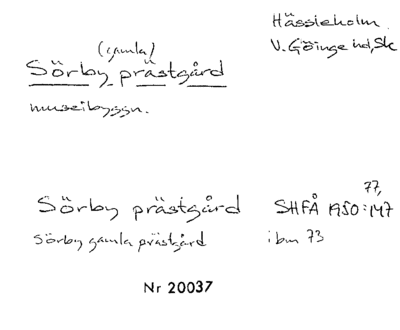 Hässleholm
V. Göinge hd, Sk
(gamla)
Sörby prästgård
museibyggn.
77,
Sörby prästgård SHFÅ 1950:147
Sörby gamla prästgård ibm 73
Nr 20037